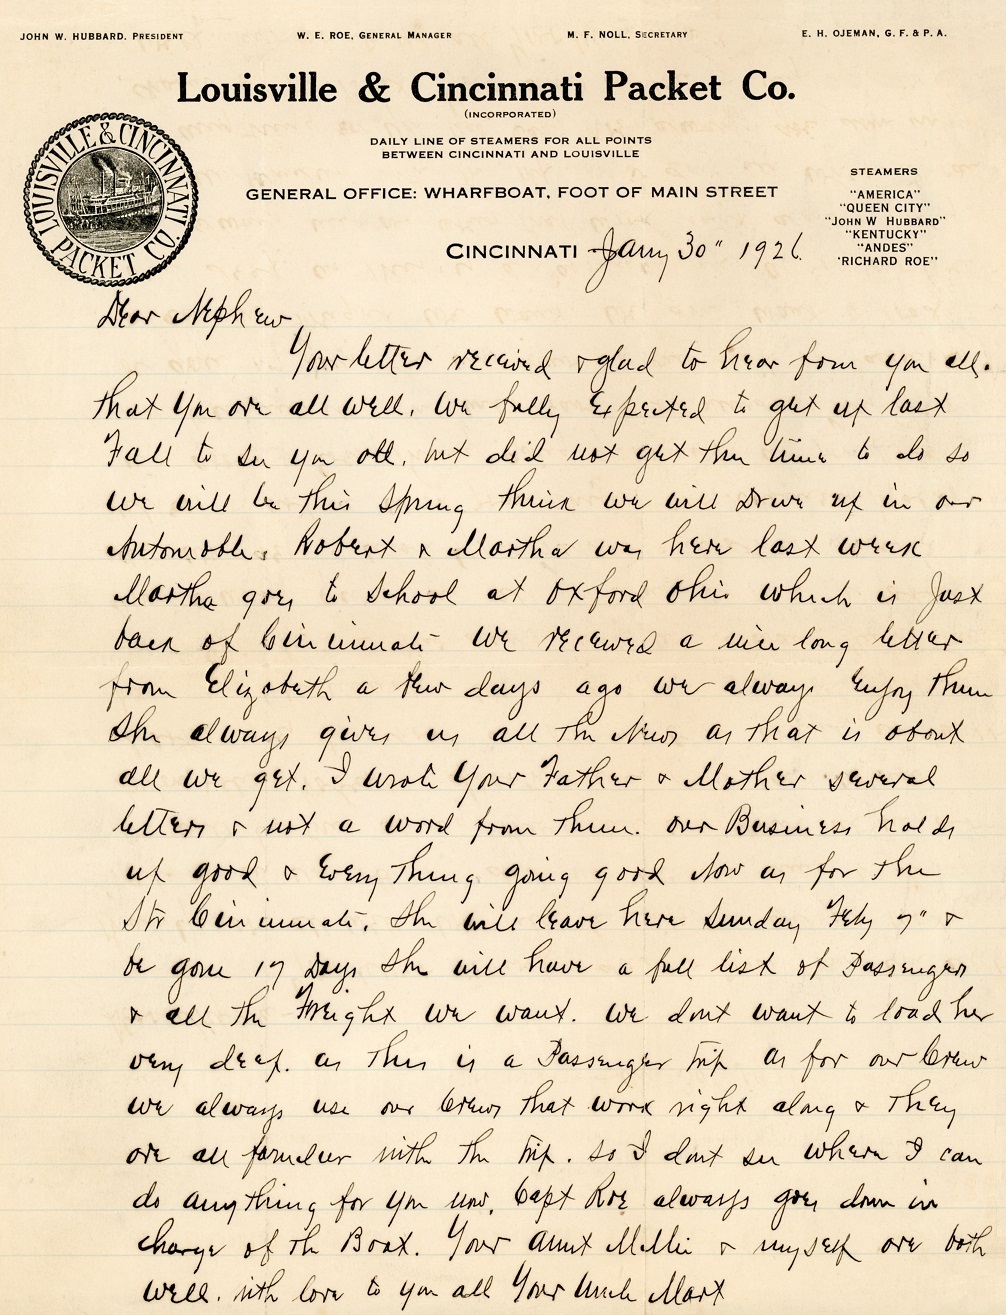 JOHN W. HUBBARD, PRESIDENT W. E. ROE, GENERAL MANAGER M. F. NOLL, SECRETARY E. H. OJEMAN, G. F. & P. A.
Louisville & Cincinnati Packet Co.
(INCORPORATED)
DAILY LINE OF STEAMERS FOR ALL POINTS
BETWEEN CINCINNATI AND LOUISVILLE
GENERAL OFFICE: WHARFBOAT, FOOT OF MAIN STREET
LOUISVILLE & CINCINNATI PACKET CO.
STEAMERS
"AMERICA"
"QUEEN CITY"
"JOHN W HUBBARD"
"KENTUCKY"
"ANDES"
"RICHARD ROE"
CINCINNATI Jany 30" 1926
Dear Nephew
Your letter received & glad to hear from you all.
that you are all well. We fully Expected to get up last
Fall to see you all. but did not get the time to do so
we will be this Spring think we will Drive up in our
Automobile. Robert & Martha was here last week
Martha goes to School at Oxford Ohio which is Just
back of Cincinnati We received a nice long letter
from Elizabeth a few days ago we always Enjoy them
She always gives us all the News as that is about
all we get. I wrote Your Father & Mother several
letters & not a word from them. our Business holds
up good & Every thing going good Now as for the
Str Cincinnati. She will leave here Sunday Feby 7" &
be gone 17 Days She will have a full list of Passengers
& all the Freight we want. We dont want to load her
very deep. as this is a Passenger trip as for our Crew
we always use our Crews that work right along & They
are all familier with the trip. so I dont see where I can
do anything for you now. Capt Roe always goes down in
charge of the Boat. Your Aunt Mollie & myself are both
well. with love to you all Your Uncle Mart